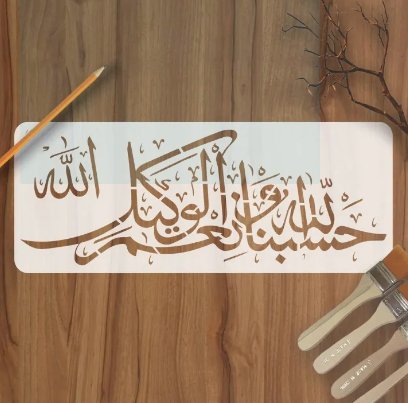 حسبنا الله ونعم الوكيل الله